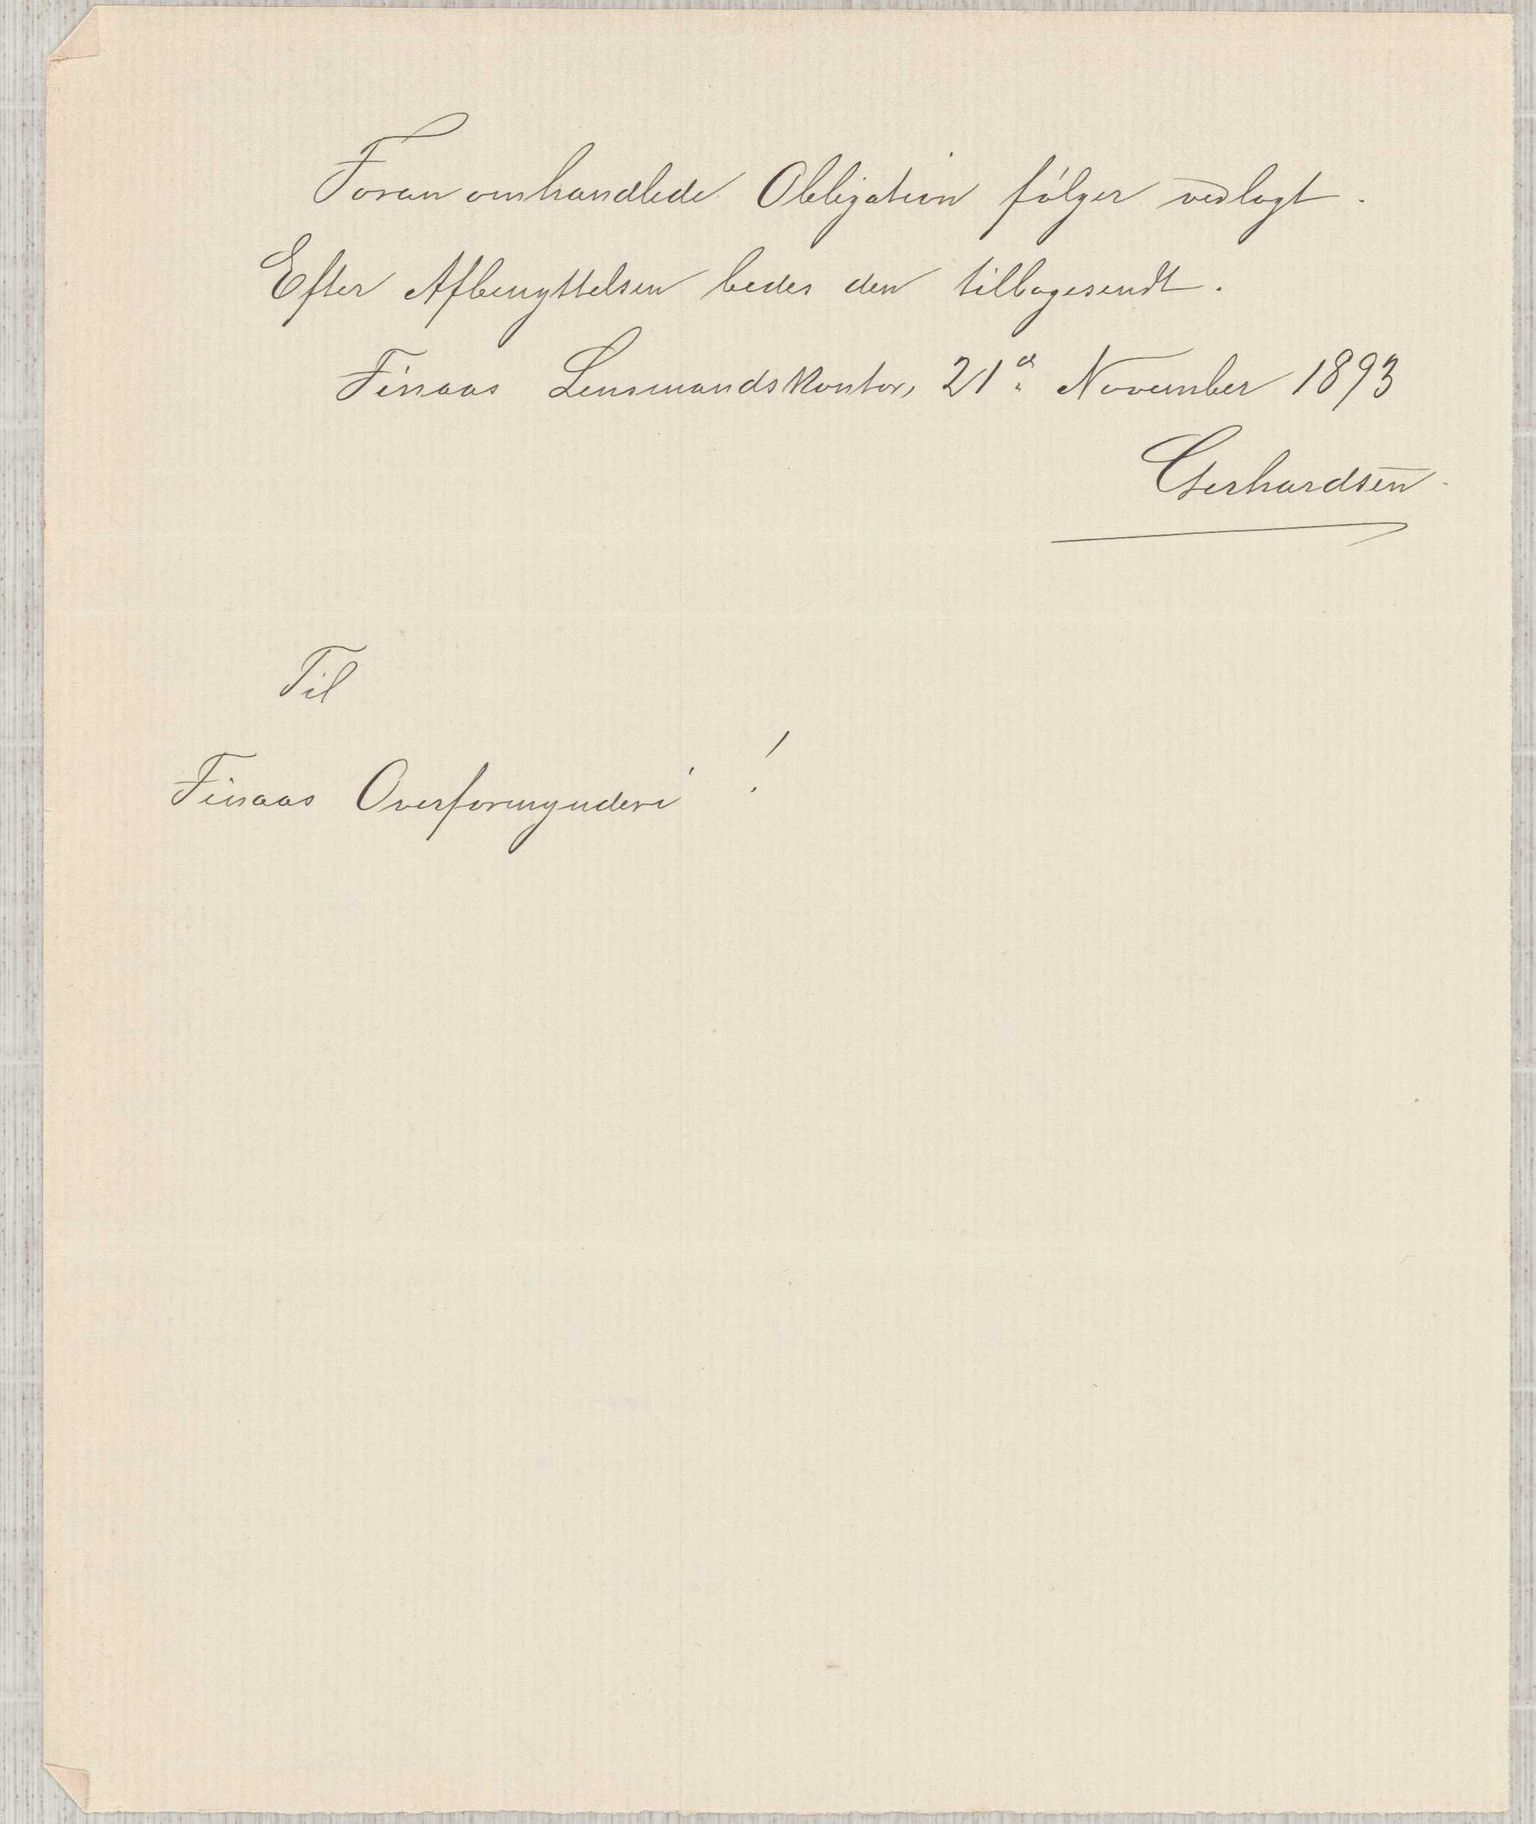 Foran omhandlede Obligation følger vedlagt.
Efter Afbenyttelsen bedes den tilbagesendt.
Finaas Lensmandskontor, 21d November 1893
Gerhardsen.
Til
Finaas Overformynderi!